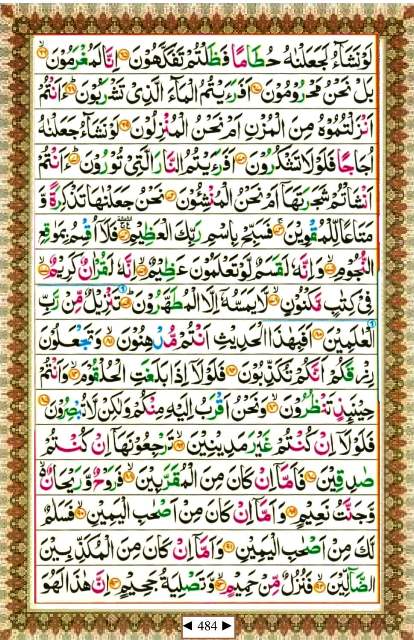 لَوْ نَشَآءُ لَجَعَلْنٰهُ حُطَامًا فَظَلْتُمْ تَفَكَّهُوْنَ ﴿۶۵﴾ اِنَّا لَمُغْرَمُوْنَ ﴿۶۶﴾
بَلْ نَحْنُ مَحْرُوْمُوْنَ ﴿۶۷﴾ اَفَرَءَيْتُمُ الْمَآءَ الَّذِيْ تَشْرَبُوْنَ ﴿۶۸﴾ ءَاَنْتُمْ
اَنْزَلْتُمُوْهُ مِنَ الْمُزْنِ اَمْ نَحْنُ الْمُنْزِلُوْنَ ﴿۶۹﴾ لَوْ نَشَآءُ جَعَلْنٰهُ
اُجَاجًا فَلَوْلَا تَشْكُرُوْنَ ﴿۷۰﴾ اَفَرَءَيْتُمُ النَّارَ الَّتِيْ تُوْرُوْنَ ﴿۷۱﴾ ءَاَنْتُمْ
اَنْشَاْتُمْ شَجَرَتَهَآ اَمْ نَحْنُ الْمُنْشِئُوْنَ ﴿۷۲﴾ نَحْنُ جَعَلْنٰهَا تَذْكِرَةً وَّ
مَتَاعًا لِّلْمُقْوِيْنَ ﴿۷۳﴾ فَسَبِّحْ بِاسْمِ رَبِّكَ الْعَظِيْمِ ﴿۷۴﴾ فَلَآ اُقْسِمُ بِمَوٰقِعِ
النُّجُوْمِ ﴿۷۵﴾ وَاِنَّهٗ لَقَسَمٌ لَّوْ تَعْلَمُوْنَ عَظِيْمٌ ﴿۷۶﴾ اِنَّهٗ لَقُرْاٰنٌ كَرِيْمٌ ﴿۷۷﴾
فِيْ كِتٰبٍ مَّكْنُوْنٍ ﴿۷۸﴾ لَّا يَمَسُّهٗٓ اِلَّا الْمُطَهَّرُوْنَ ﴿۷۹﴾ تَنْزِيْلٌ مِّنْ رَّبِّ
الْعٰلَمِيْنَ ﴿۸۰﴾ اَفَبِهٰذَا الْحَدِيْثِ اَنْتُمْ مُّدْهِنُوْنَ ﴿۸۱﴾ وَتَجْعَلُوْنَ
رِزْقَكُمْ اَنَّكُمْ تُكَذِّبُوْنَ ﴿۸۲﴾ فَلَوْلَآ اِذَا بَلَغَتِ الْحُلْقُوْمَ ﴿۸۳﴾ وَاَنْتُمْ
حِيْنَئِذٍ تَنْظُرُوْنَ ﴿۸۴﴾ وَنَحْنُ اَقْرَبُ اِلَيْهِ مِنْكُمْ وَلٰكِنْ لَّا تُبْصِرُوْنَ ﴿۸۵﴾
فَلَوْلَآ اِنْ كُنْتُمْ غَيْرَ مَدِيْنِيْنَ ﴿۸۶﴾ تَرْجِعُوْنَهَآ اِنْ كُنْتُمْ
صٰدِقِيْنَ ﴿۸۷﴾ فَاَمَّآ اِنْ كَانَ مِنَ الْمُقَرَّبِيْنَ ﴿۸۸﴾ فَرَوْحٌ وَّرَيْحَانٌ
وَّجَنَّتُ نَعِيْمٍ ﴿۸۹﴾ وَاَمَّآ اِنْ كَانَ مِنْ اَصْحٰبِ الْيَمِيْنِ ﴿۹۰﴾ فَسَلٰمٌ
لَّكَ مِنْ اَصْحٰبِ الْيَمِيْنِ ﴿۹۱﴾ وَاَمَّآ اِنْ كَانَ مِنَ الْمُكَذِّبِيْنَ
الضَّآلِّيْنَ ﴿۹۲﴾ فَنُزُلٌ مِّنْ حَمِيْمٍ ﴿۹۳﴾ وَّتَصْلِيَةُ جَحِيْمٍ ﴿۹۴﴾ اِنَّ هٰذَا لَهُوَ
◄ 484 ►